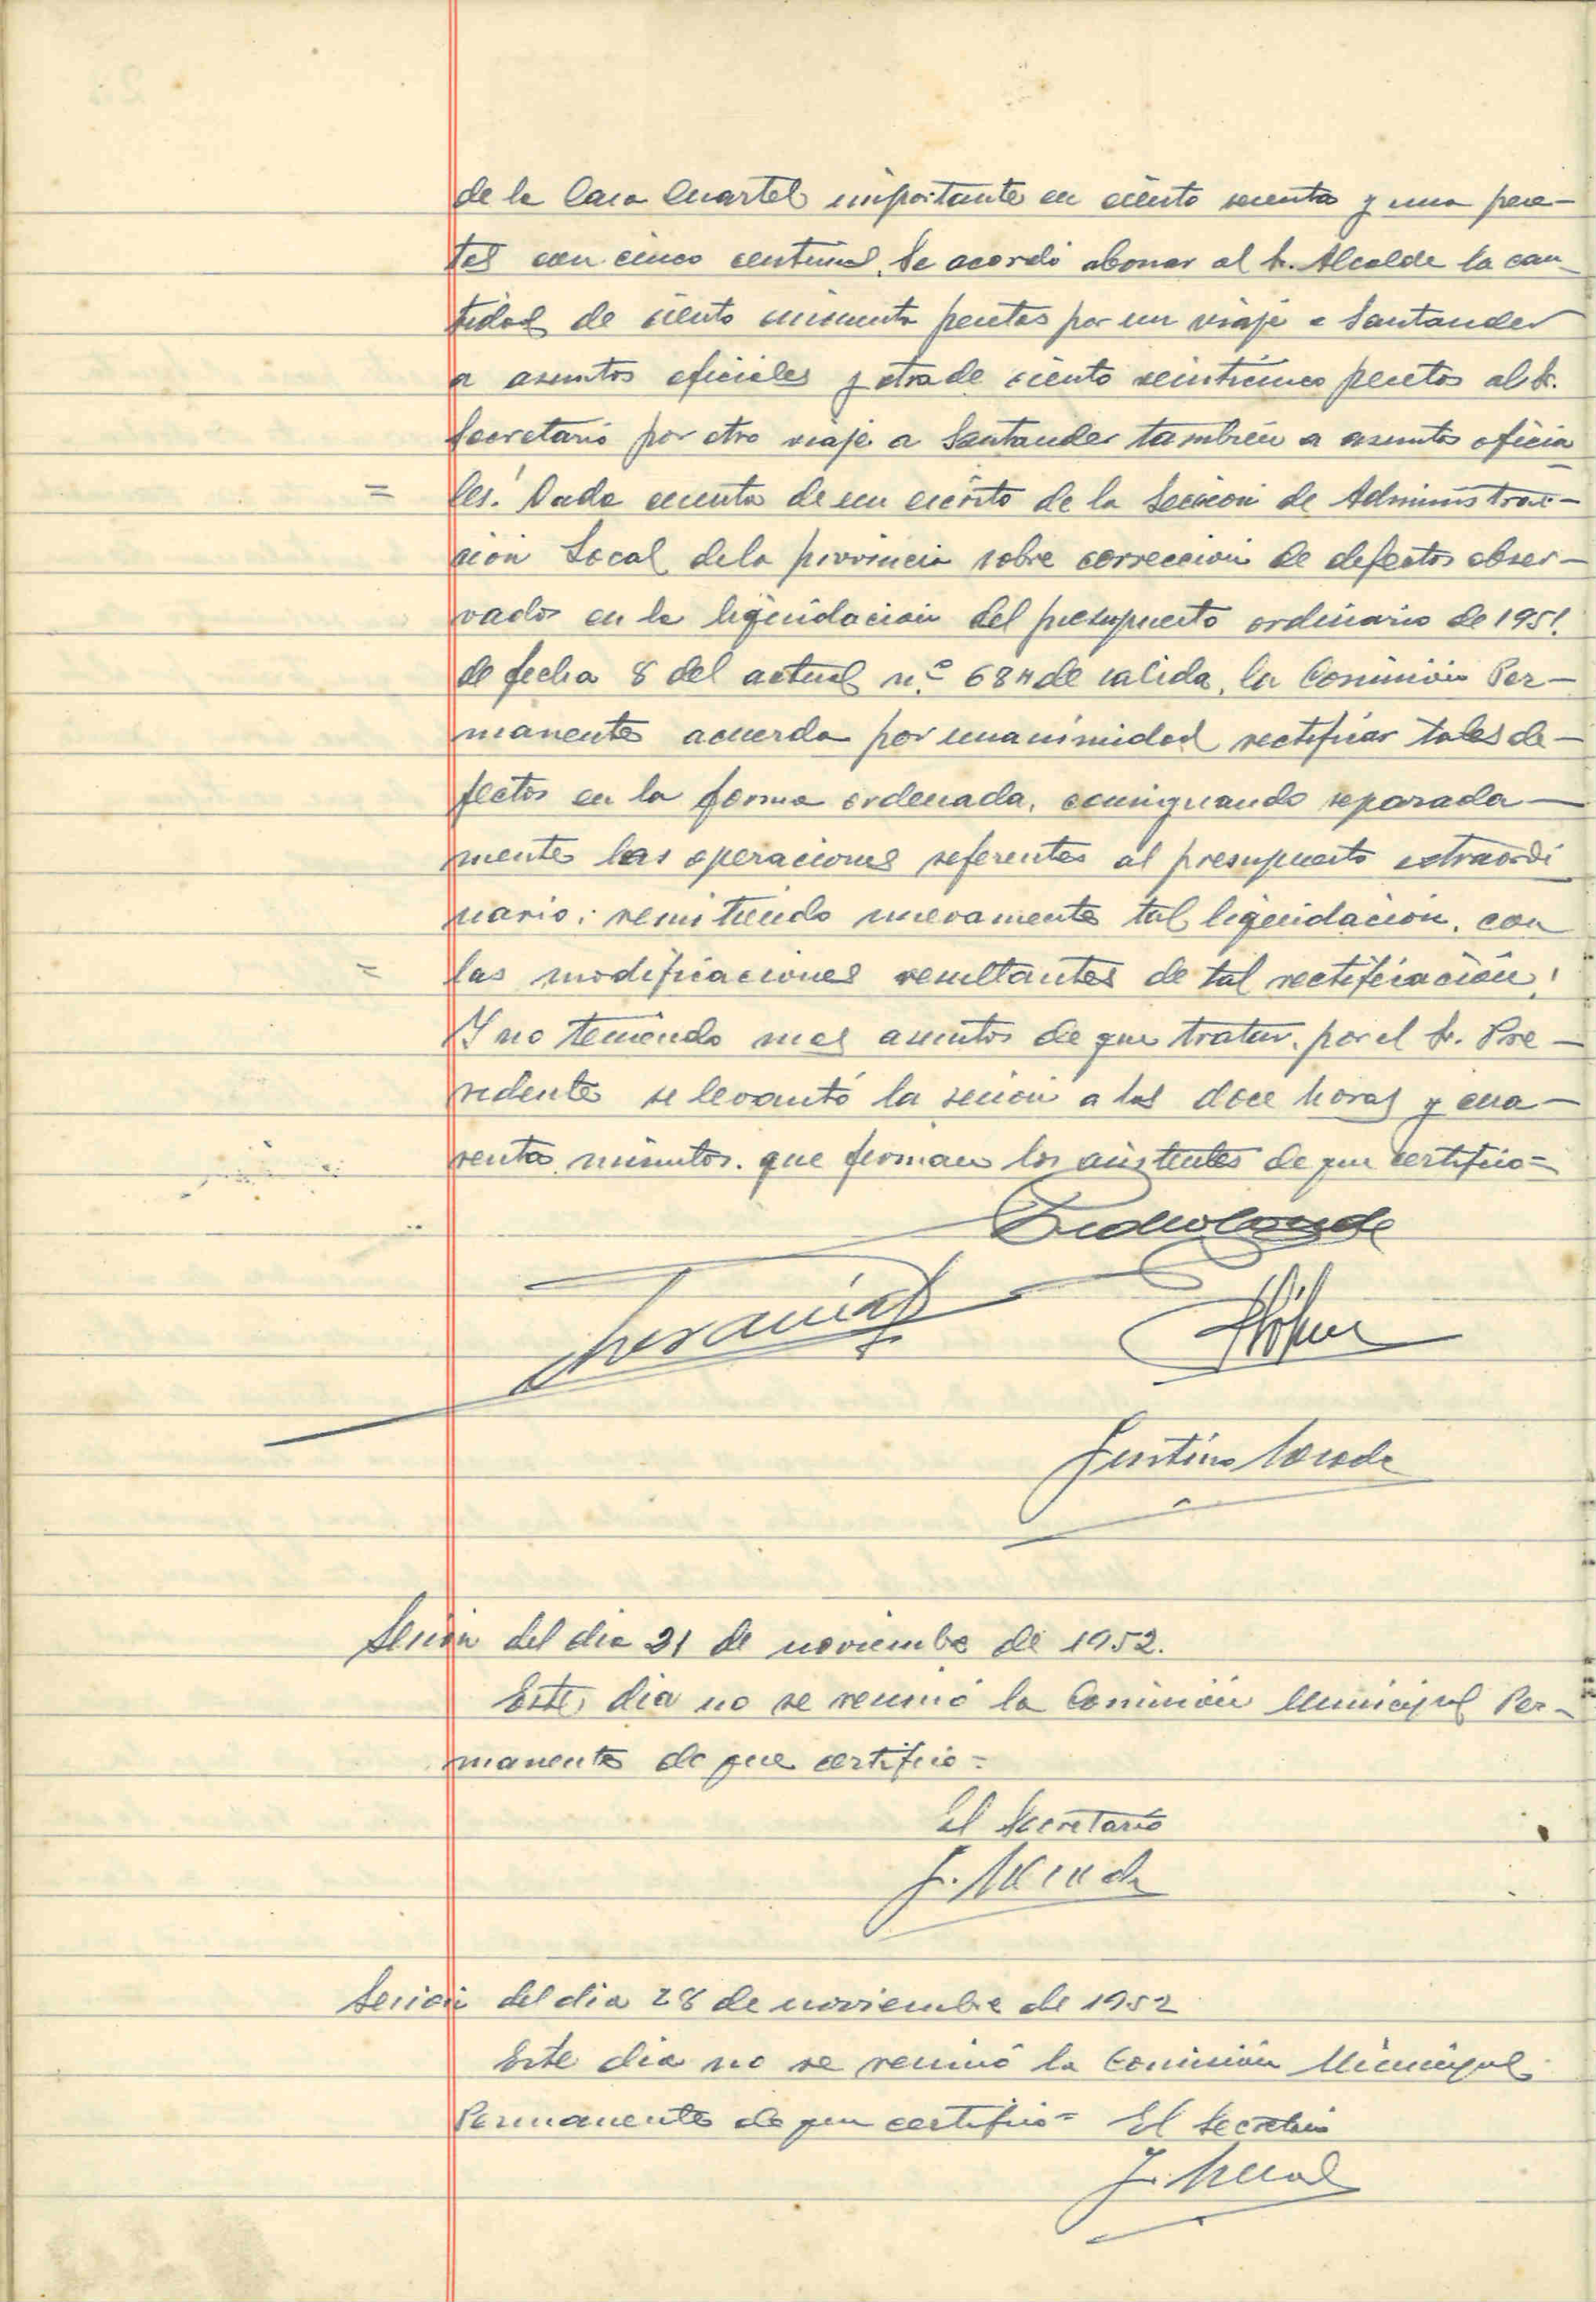 de la Casa Cuartel importante en ciento sesenta y una pese-
tas con cinco centimos. Se acordó abonar al Sr. Alcalde la can-
tidad de ciento cincuenta pesetas por un viaje a Santander
a asuntos oficiales y otra de ciento veinticinco pesetas al Sr.
Secretario por otro viaje a Santander también a asuntos oficia
= les. Dada cuenta de un escrito de la Sección de Administrac-
ción Local dela provincia sobre corrección de defectos obser-
vados en la liquidación del presupuesto ordinario de 1951.
de fecha 8 del actual n.º 684 de salida, la Comisión Per-
manente acuerda por unanimidad rectificar tales de-
fectos en la forma ordenada, consignando separada-
mente las operaciones referentes al presupuesto extraordi
nario; remitiendo nuevamente tal liquidación, con
= las modificaciones resultantes de tal rectificación.
Y no teniendo mas asuntos de que tratar, por el Sr. Pre-
sidente se levantó la sesión a las doce horas y cua-
renta minutos. que firman los asistentes de que certifico=
Justino
Sesión del dia 21 de noviembre de 1952.
Este dia no se reunió la Comisión Municipal Per-
manente de que certifico=
El Secretario
J.
Sesión del dia 28 de noviembre de 1952
Este dia no se reunió la Comisión Municipal
Permanente de que certifico= El Secretario
J.